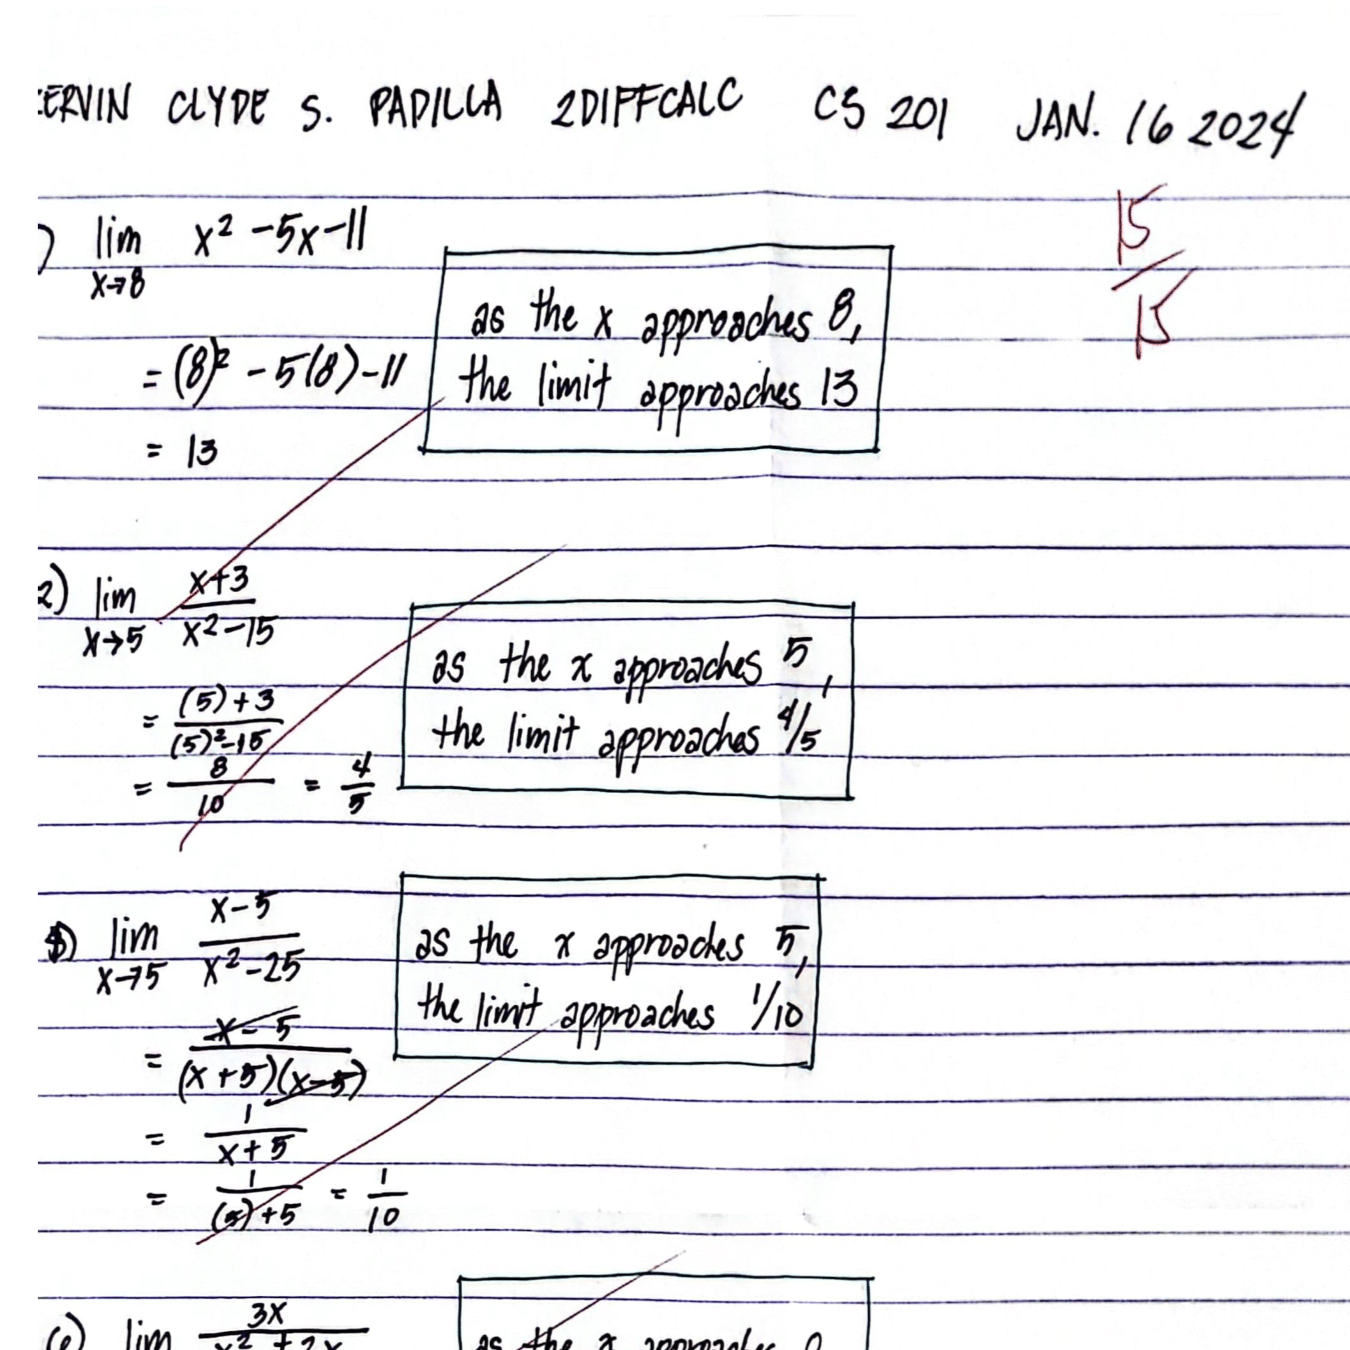 ERVIN CLYDE S. PADILLA 2DIFFCALC CS 201 JAN. 16 2024
15/15
) lim x→8 x² -5x-11
= (8)² - 5(8)-11
= 13
as the x approaches 8,
the limit approaches 13
2) lim x→5 x+3 / x²-15
= (5)+3 / (5)²-15
= 8/10 = 4/5
as the x approaches 5,
the limit approaches 4/5
lim x→5 x-5 / x²-25
= x-5 / (x+5)(x-5)
= 1 / x+5
= 1 / (5)+5 = 1/10
as the x approaches 5,
the limit approaches 1/10
lim 3x / x² + 2x
as the x approaches